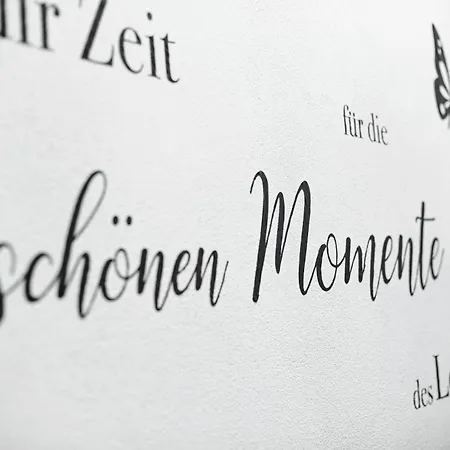 Zeit
für die
schönen Momente
des